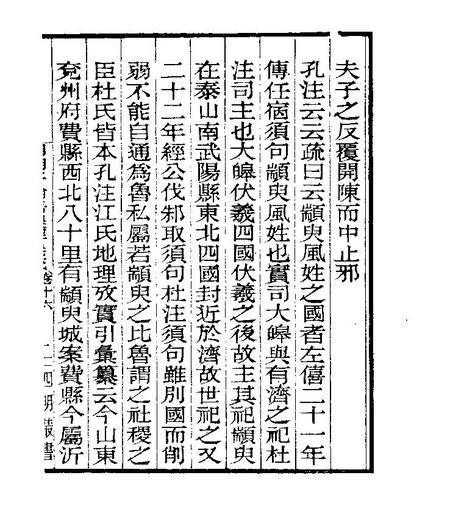 夫子之反覆開陳而中止邪
孔注云云疏曰云顓臾風姓之國者左僖二十一年
傳任宿須句顓臾風姓也實司大皞與有濟之祀杜
注司主也大皞伏羲四國伏羲之後故主其祀顓臾
在泰山南武陽縣東北四國封近於濟故世祀之又
二十二年經公伐邾取須句杜注須句雖別國而削
弱不能自通爲魯私屬若顓臾之比魯謂之社稷之
臣杜氏皆本孔注江氏地理攷實引彙纂云今山東
兗州府費縣西北八十里有顓臾城案費縣今屬沂
卷十六
四明叢書